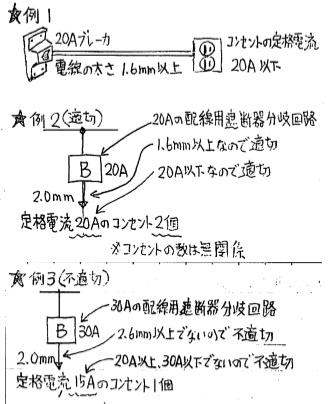 ★例1
20Aブレーカ
電線の太さ 1.6mm以上
コンセントの定格電流
20A以下
★例2(適切)
20Aの配線用遮断器分岐回路
B
20A
1.6mm以上なので適切
20A以下なので適切
2.0mm
定格電流20Aのコンセント2個
※コンセントの数は無関係
★例3(不適切)
30Aの配線用遮断器分岐回路
B
30A
2.6mm以上でないので不適切
2.0mm
20A以上、30A以下でないので不適切
定格電流15Aのコンセント1個